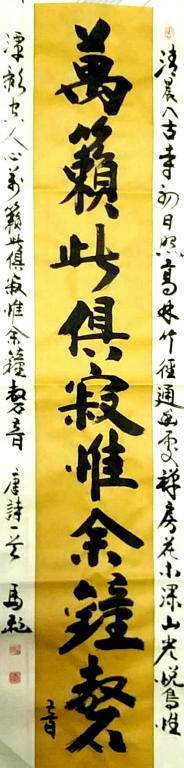 清晨入古寺初日照高林竹徑通幽處禪房花木深山光悅鳥性
萬籟此俱寂惟余鐘磬
音
潭影空人心萬籟此俱寂惟余鐘磬音 唐詩一首 馬